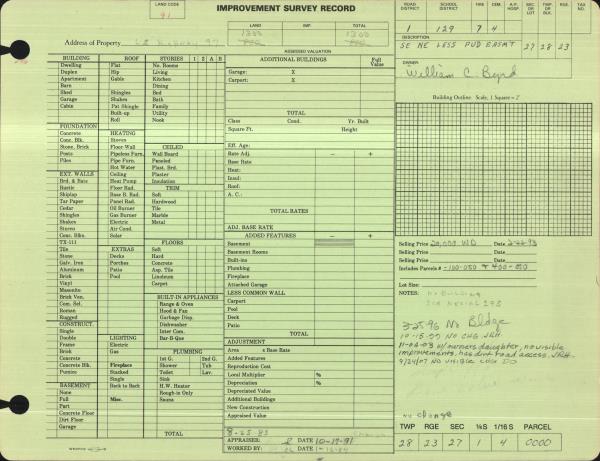 LAND CODE
91
IMPROVEMENT SURVEY RECORD
LAND IMP. TOTAL
1200 1200
Address of Property Highway 97
ASSESSED VALUATION
ROAD DISTRICT SCHOOL DISTRICT FIRE CEM. A.P. HOSP. SEC. OR LOT TWP. OR BLK. RGE. TAX NO.
1 129 7 4
DESCRIPTION
SE NE LESS PUB EASMT 27 28 23
OWNER
William C. Byrd
Building Outline: Scale, 1 Square = 2'
BUILDING
Dwelling
Duplex
Apartment
Barn
Shed
Garage
Cabin
ROOF
Flat
Hip
Gable
Shingles
Shakes
Pat Shingle
Built-up
Roll
STORIES 1 2 A B
No. Rooms
Living
Kitchen
Dining
Bed
Bath
Family
Utility
Nook
FOUNDATION
Concrete
Conc. Blk.
Stone, Brick
Posts
Piles
HEATING
Stoves
Floor-Wall
Pipeless Furn.
Pipe Furn.
Hot Water
Ceiling
Heat Pump
Floor Rad.
Base B. Rad.
Panel Rad.
Oil Burner
Gas Burner
Electric
Air Cond.
Solar
CEILED
Wall Board
Paneled
Plast. Brd.
Plaster
Insulation
EXT. WALLS
Brd. & Bats
Rustic
Shiplap
Tar Paper
Cedar
Shingles
Shakes
Stucco
Conc. Blkn.
TX-111
Tile
Stone
Galv. Iron
Aluminum
Brick
Vinyl
Masonite
Brick Ven.
Com. Sel.
Roman
Rugged
TRIM
Soft
Hardwood
Tile
Marble
Metal
EXTRAS
Decks
Porches
Patio
Pool
FLOORS
Soft
Hard
Concrete
Asp. Tile
Linoleum
Carpet
BUILT-IN APPLIANCES
Range & Oven
Hood & Fan
Garbage Disp.
Dishwasher
Inter Com.
Bar-B-Que
CONSTRUCT.
Single
Double
Frame
Brick
Concrete
Concrete Blk.
Pumice
LIGHTING
Electric
Gas
Fireplace
Stacked
Single
Back to Back
Misc.
PLUMBING
1st G. 2nd G.
Shower Tub
Toilet Lav.
Sink
H.W. Heater
Rough-in Only
Sauna
BASEMENT
None
Full
Part
Concrete Floor
Dirt Floor
Garage
TOTAL
ADDITIONAL BUILDINGS Full Value
Garage: X
Carport: X
TOTAL
Class Cond. Yr. Built
Square Ft. Height
Eff. Age:
Rate Adj. − +
Base Rate
Heat:
Insul:
Roof:
A. C.:
TOTAL RATES
ADJ. BASE RATE
ADDED FEATURES − +
Basement
Basement Rooms
Built-ins
Plumbing
Fireplace
Attached Garage
LESS COMMON WALL
Carport
Pool
Deck
Patio
TOTAL
ADJUSTMENT
Area x Base Rate
Added Features
Reproduction Cost
Local Multiplier %
Depreciation %
Depreciated Value
Additional Buildings
New Construction
Appraised Value
8-25-83
APPRAISER: DATE 10-17-91
WORKED BY: DATE
Selling Price 20,000 WD Date 2-22-93
Selling Price Date
Selling Price Date
Includes Parcels # -100-050 + 400-050
Lot Size:
NOTES: No Building
3-25-96 No Bldg
10-15-97 NO CHG JRH
11-04-03 w/owners daughter, no visible
improvements, has dirt road access. JRH
9/24/07 No visible CHG DO
no change
TWP RGE SEC ¼S 1/16 S PARCEL
28 23 27 1 4 0000